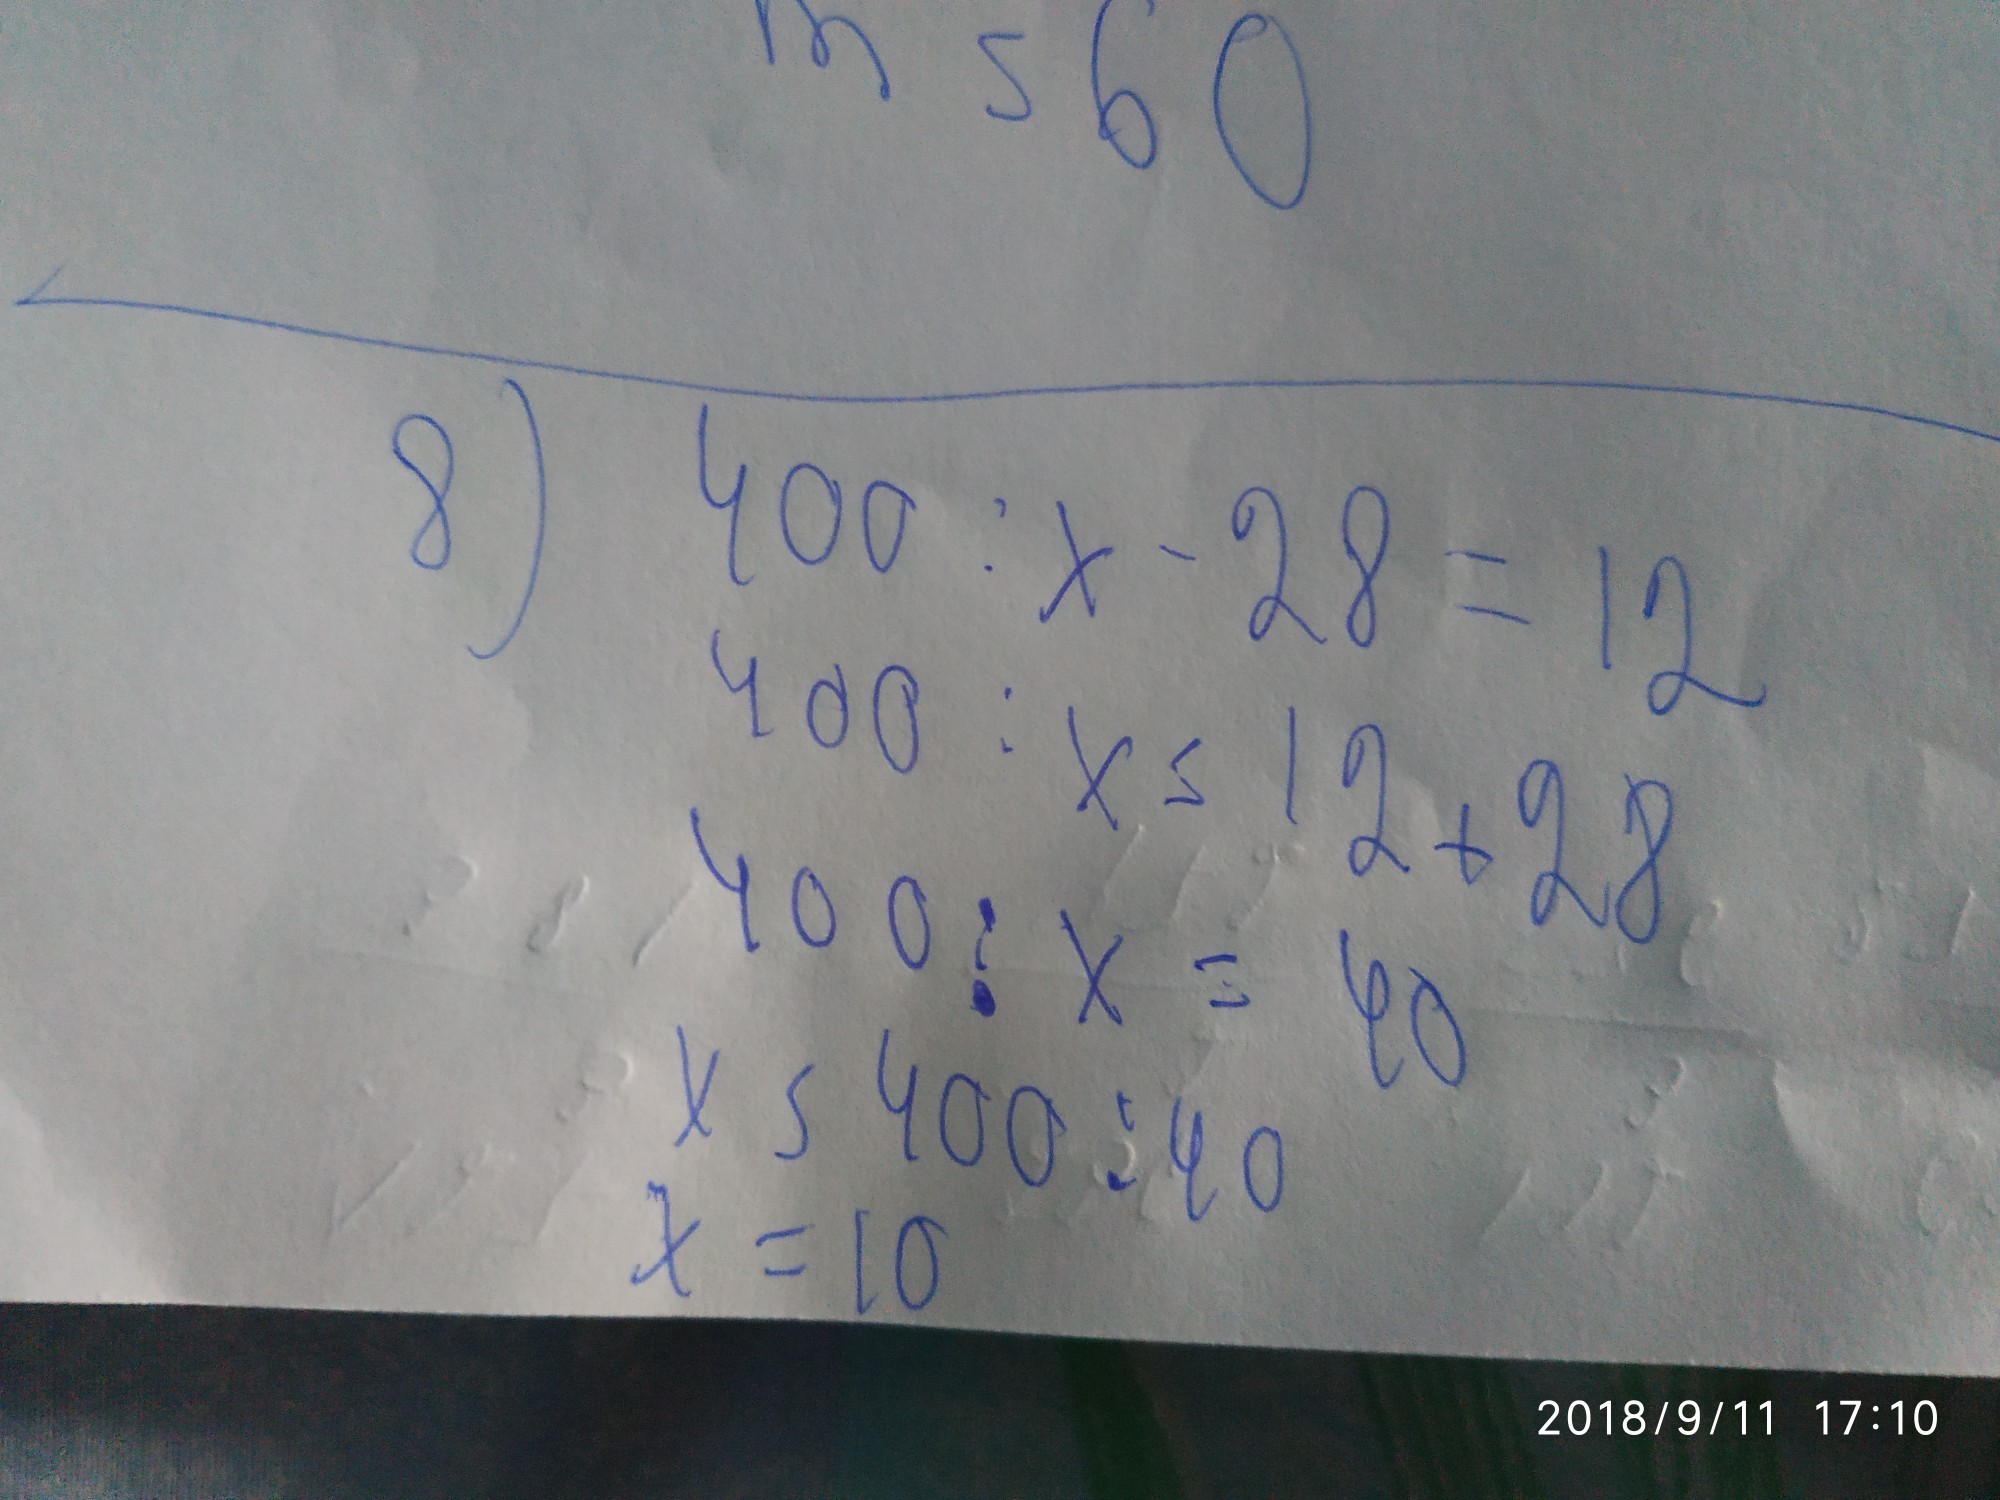 m = 60
8) 400 : x - 28 = 12
400 : x = 12 + 28
400 : x = 40
x = 400 : 40
x = 10
2018/9/11 17:10